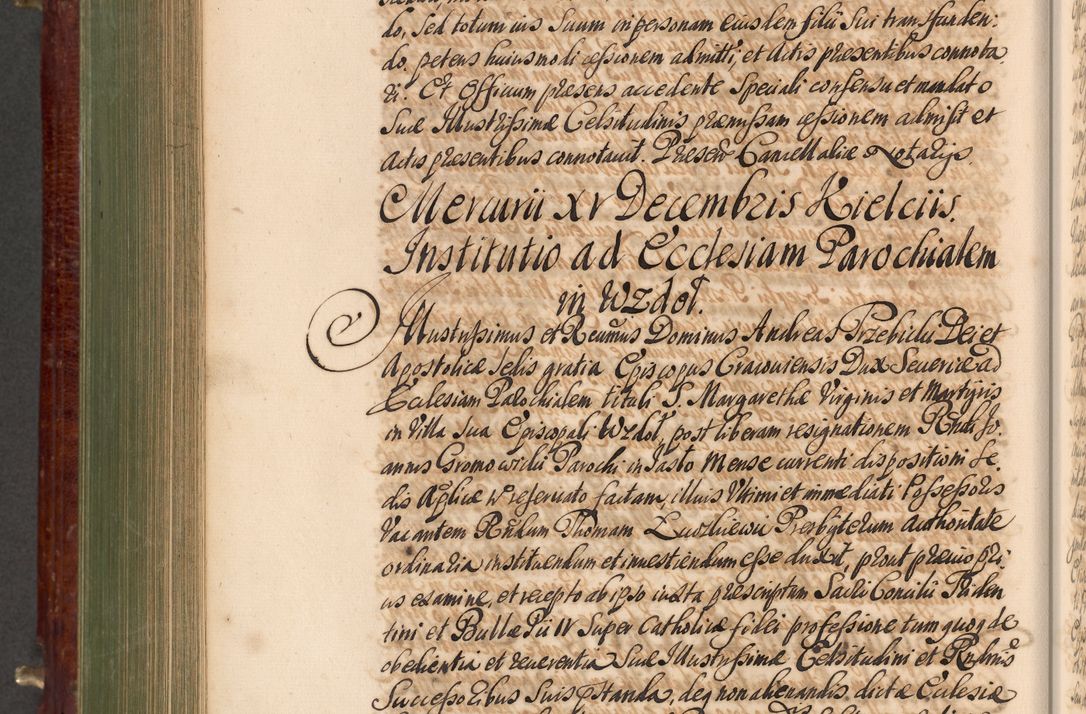 do, sed totum ius suum in personam eiusdem filii sui transfunden:
do. petens huiusmodi cessionem admitti, et Actis præsentibus connota
ri. Et Officium præsens accedente speciali consensu et mandato
Suæ Illustrissimæ Celsitudinis præmissam cessionem admisit et
Actis præsentibus connotavit. Præsen Cancellariæ Notarijs.
Mercurii xv Decembris Kielciis.
Institutio ad Ecclesiam Parochialem
in Wzdoł.
Illustrissimus et Reũmus Dominus Andreas Przebilu Dei et
Apostolicæ Sedis gratia Episcopus Cracoviensis Dux Severiæ ad
Ecclesiam Parochialem tituli S. Margarethæ Virginis et Martyris
in Villa Sua Episcopali Wzdoł, post liberam resignationem Rñdi Jo
annis Gromowicii Parochi in Jasto Mense currenti dispositioni Se
dis Aplicæ reservato factam, illius Ultimi et immediati Possessoris
Vacantem Rñdum Thomam Presbyterum authoritate
ordinaria instituendum et investiendum esse duxit, prout prævio pri
us examine, et recepto ab ipso iuxta præscriptum Sacri Concilii Triden
tini et Bullæ Pii IV super Catholicæ fidei professione tum quoq de
obedientia et reverentia Suæ Illustrissimæ Celsitudini et Rñdmis
Successoribus Suis pstanda, deq non alienandis dictæ Ecclesiæ